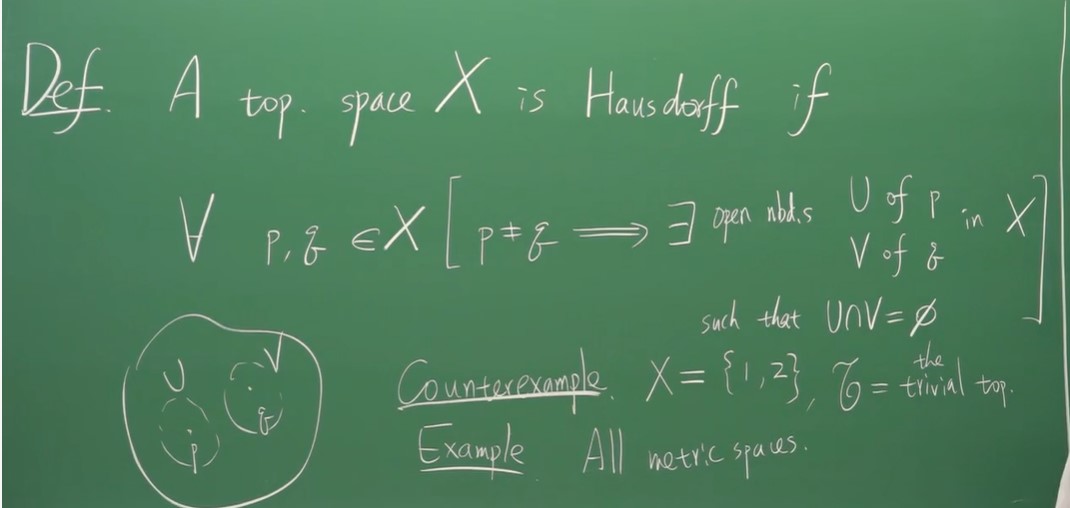 Def. A top. space X is Hausdorff if
∀ p, q ∈ X [ p ≠ q ⟹ ∃ open nbd.s U of p in X ]
V of q
such that U∩V = ∅
U V
p q
Counterexample. X = {1, 2}, 𝒯 = the trivial top.
Example All metric spaces.